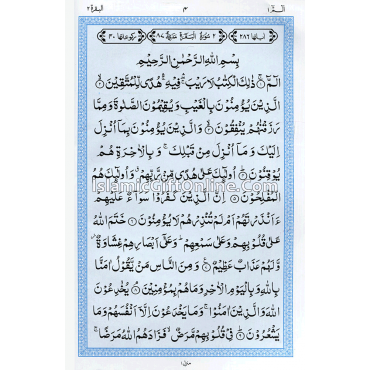 الٓمّٓ ١
٣
البقرة ٢
اٰیاتها ٢٨٦
٢ سُوْرَةُ الْبَقَرَةِ مَدَنِيَّةٌ ٨٧
رکوعاتها ٤٠
بِسْمِ اللهِ الرَّحْمٰنِ الرَّحِيْمِ
الٓمّٓ ۚ ذٰلِكَ الْكِتٰبُ لَا رَيْبَ ۛ فِيْهِ ۛ هُدًى لِّلْمُتَّقِيْنَ ۙ
الَّذِيْنَ يُؤْمِنُوْنَ بِالْغَيْبِ وَيُقِيْمُوْنَ الصَّلٰوةَ وَمِمَّا
رَزَقْنٰهُمْ يُنْفِقُوْنَ ۙ وَالَّذِيْنَ يُؤْمِنُوْنَ بِمَاۤ اُنْزِلَ
اِلَيْكَ وَمَاۤ اُنْزِلَ مِنْ قَبْلِكَ ۚ وَبِالْاٰخِرَةِ هُمْ
يُوْقِنُوْنَ ؕ اُولٰٓئِكَ عَلٰى هُدًى مِّنْ رَّبِّهِمْ ۗ وَاُولٰٓئِكَ هُمُ
الْمُفْلِحُوْنَ اِنَّ الَّذِيْنَ كَفَرُوْا سَوَآءٌ عَلَيْهِمْ
ءَاَنْذَرْتَهُمْ اَمْ لَمْ تُنْذِرْهُمْ لَا يُؤْمِنُوْنَ خَتَمَ اللهُ
عَلٰى قُلُوْبِهِمْ وَعَلٰى سَمْعِهِمْ ؕ وَعَلٰۤى اَبْصَارِهِمْ غِشَاوَةٌ ز
وَّلَهُمْ عَذَابٌ عَظِيْمٌ وَمِنَ النَّاسِ مَنْ يَّقُوْلُ اٰمَنَّا
بِاللهِ وَبِالْيَوْمِ الْاٰخِرِ وَمَا هُمْ بِمُؤْمِنِيْنَ ۘ يُخٰدِعُوْنَ
اللهَ وَالَّذِيْنَ اٰمَنُوْا ۚ وَمَا يَخْدَعُوْنَ اِلَّاۤ اَنْفُسَهُمْ وَمَا
يَشْعُرُوْنَ ؕ فِيْ قُلُوْبِهِمْ مَّرَضٌ ۙ فَزَادَهُمُ اللهُ مَرَضًا ۚ
منزل ١
IslamicGiftOnline.com